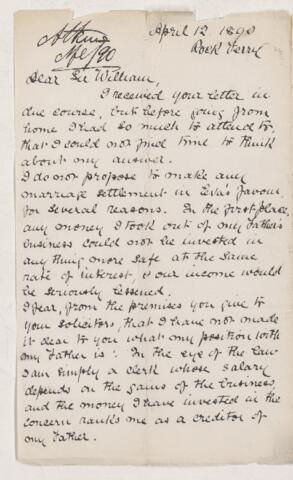 April 12 1890
Rock Ferry
Dear Sir William,
I received your letter in
due course, but before going from
home I had so much to attend to,
that I could not find time to think
about my answer.
I do not propose to make any
marriage settlement in Eva's favour
for several reasons. In the first place,
any money I took out of my Father's
business could not be invested in
anything more safe at the same
rate of interest, & our income would
be seriously lessened.
I fear, from the premises you give to
your solicitors, that I have not made
it clear to you what my position with
my Father is: In the eye of the Law
I am simply a clerk whose salary
depends on the gains of the business,
and the money I have invested in the
concern ranks me as a creditor of
my Father.